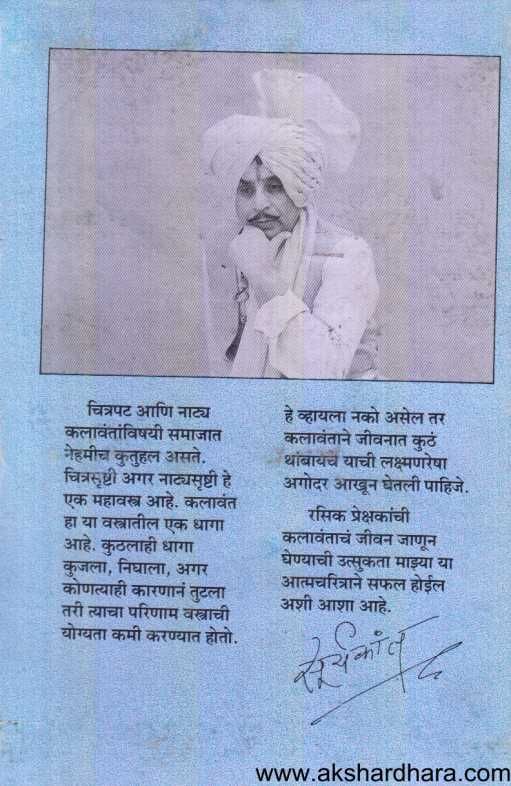 चित्रपट आणि नाट्य
कलावंतांविषयी समाजात
नेहमीच कुतुहल असते.
चित्रसृष्टी अगर नाट्यसृष्टी हे
एक महावस्त्र आहे. कलावंत
हा या वस्त्रातील एक धागा
आहे. कुठलाही धागा
कुजला, निघाला, अगर
कोणत्याही कारणानं तुटला
तरी त्याचा परिणाम वस्त्राची
योग्यता कमी करण्यात होतो.
हे व्हायला नको असेल तर
कलावंताने जीवनात कुठं
थांबायचं याची लक्ष्मणरेषा
अगोदर आखून घेतली पाहिजे.
रसिक प्रेक्षकांची
कलावंताचं जीवन जाणून
घेण्याची उत्सुकता माझ्या या
आत्मचरित्राने सफल होईल
अशी आशा आहे.
सूर्यकांत
www.akshardhara.com